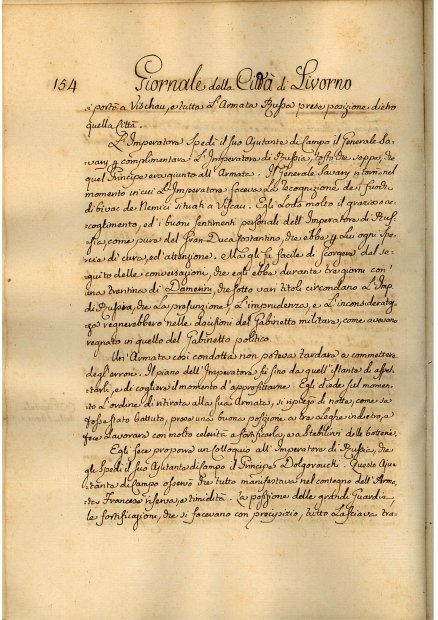 154 Giornale della Città di Livorno
si portò a Vischau, e tutta l'Armata Russa prese posizione dietro
quella Città.
L'Imperatore spedì il suo Ajutante di Campo il Generale Sa-
vary p complimentare l'Imperatore di Russia, tosto che seppe, che
quel Principe era giunto all'Armata. Il General Savary ritornò nel
momento in cui l'Imperatore faceva la recognizione de i fuochi
di bivac de Nemici situati a Viscau. Egli loda molto il grazioso ac-
coglimento, ed i buoni sentimenti personali dell'Imperatore di Rus-
sia, come pure del Gran-Duca Costantino, che ebbe p Lui ogni spe-
cie di cura, ed attenzione. Ma gli fù facile di scorgere dal se-
guito delle conversazioni, che egli ebbe durante tre giorni con
una trentina di Damerini, che sotto vari titoli circondano l'Imp.
di Russia, che la presunzione, l'imprudenza, e l'inconsideratez-
za regnerebbero nelle decisioni del Gabinetto militare, come avevano
regnato in quello del Gabinetto politico.
Un'Armata così condotta non poteva tardare a commettere
degli errori. Il piano dell'Imperatore fù sino da quell'istante di aspet-
tarli, e di cogliere il momento d'approfittarne. Egli diede sul momen-
to l'ordine di ritirata alla sua Armata, si ripiegò di notte, come se
fosse stato battuto, prese una buona posizione a tre leghe indietro, e
fece lavorare con molta celerità a fortificarla, e a stabilirvi delle batterie.
Egli fece proporre un colloquio all'Imperatore di Russia, che
gli spedì il suo Ajutante di Campo il Principe Dolgorouchi. Questo Aju-
tante di Campo osservò che tutto manifestava nel contegno dell'Arma-
ta Francese riserva, e timidità. La posizione delle grandi Guardie,
le fortificazioni, che si facevano con precipizio, tutto lasciava tra-